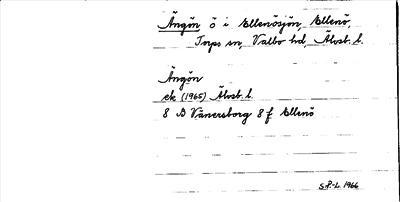 Ängön ö i Ellenösjön, Ellenö,
Torps sn, Valbo hd, Älvsb. l.
Ängön
ek (1965) Älvsb. l.
8 B Vänersborg 8 f Ellenö
S.P.-L. 1966